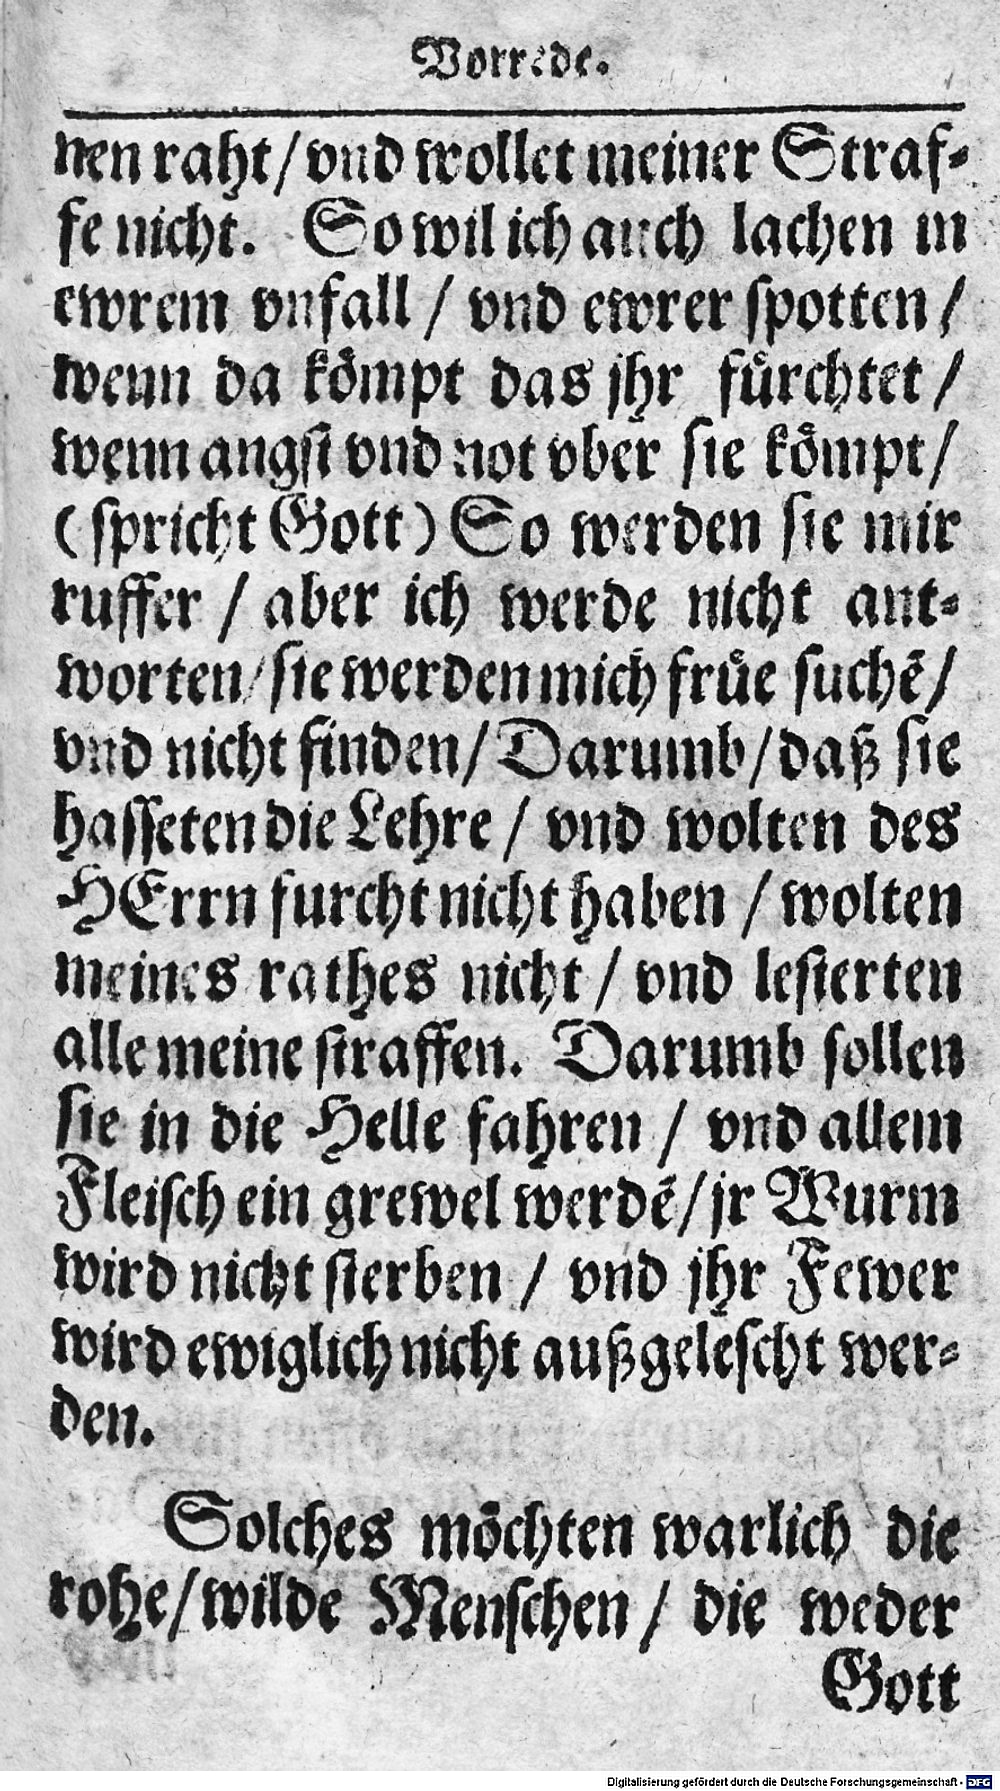 Vorrede.
nen raht/ vnd wollet meiner Straf-
fe nicht. So wil ich auch lachen in
ewrem vnfall / vnd ewrer spotten /
wenn da kömpt das jhr fürchtet /
wenn angst vnd not vber sie kömpt/
(spricht Gott) So werden sie mir
ruffer / aber ich werde nicht ant-
worten/ sie werden mich früe suchē/
vnd nicht finden/ Darumb/ daß sie
hasseten die Lehre / vnd wolten des
HErrn furcht nicht haben / wolten
meines rathes nicht / vnd lesterten
alle meine straffen. Darumb sollen
sie in die Helle fahren / vnd allem
Fleisch ein grewel werdē/ jr Wurm
wird nicht sterben / vnd jhr Fewer
wird ewiglich nicht außgelescht wer-
den.
Solches möchten warlich die
rohe/ wilde Menschen / die weder
Gott
Digitalisierung gefördert durch die Deutsche Forschungsgemeinschaft - DFG